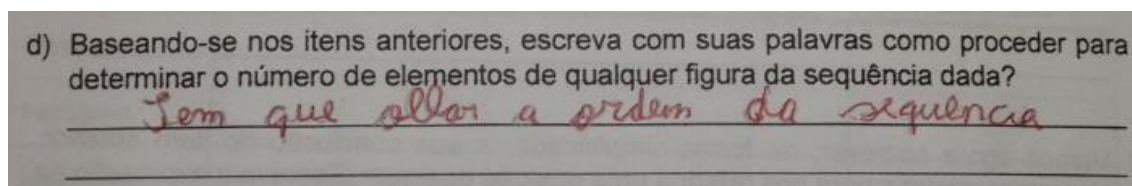 d) Baseando-se nos itens anteriores, escreva com suas palavras como proceder para
determinar o número de elementos de qualquer figura da sequência dada?
Tem que ollar a ordem da sequencia